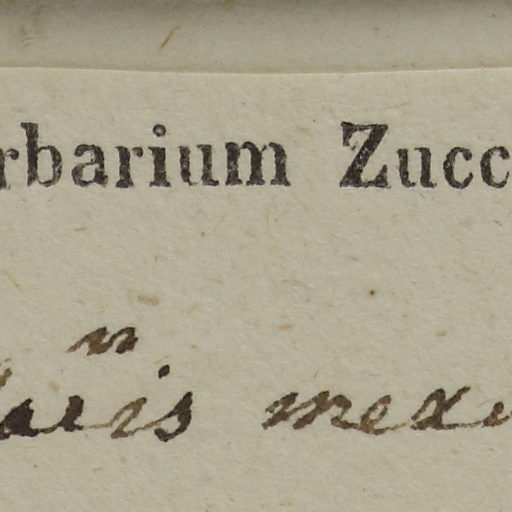 rbarium Zucc
n
aris mexi